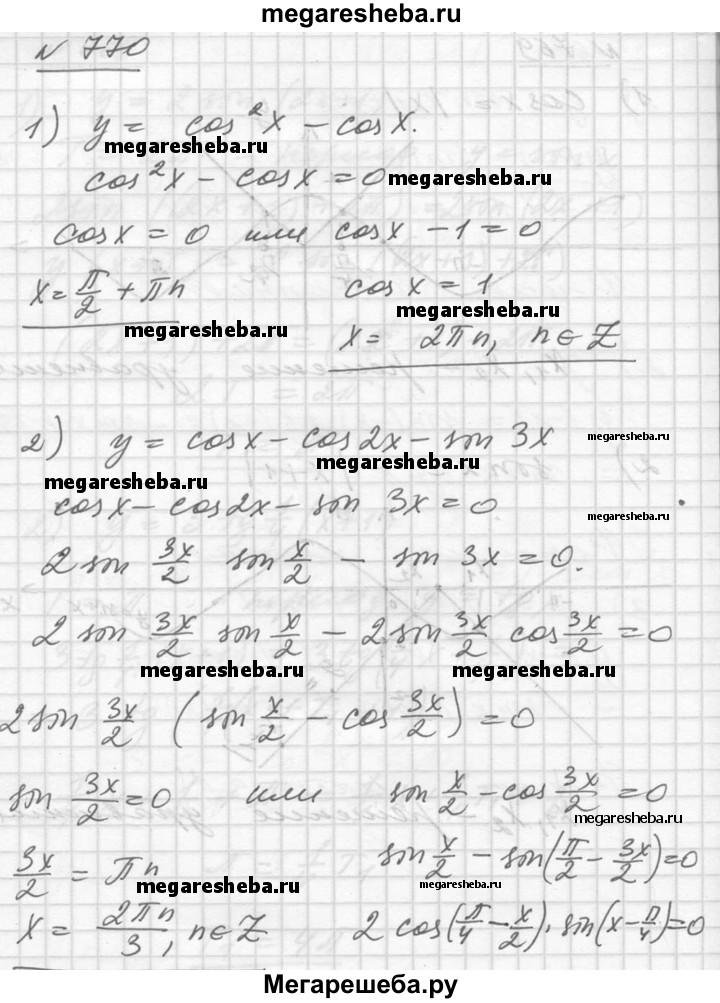 megaresheba.ru
N 770
1) y = cos²x – cosx.
megaresheba.ru
cos²x – cosx = 0 megaresheba.ru
cosx = 0 или cosx – 1 = 0
x = π/2 + πn cosx = 1
megaresheba.ru megaresheba.ru
x = 2πn, n∈Z
2) y = cosx – cos2x – sin 3x megaresheba.ru
megaresheba.ru megaresheba.ru
cosx – cos2x – sin 3x = 0 megaresheba.ru
2 sin 3x/2 sin x/2 – sin 3x = 0.
2 sin 3x/2 sin x/2 – 2 sin 3x/2 cos 3x/2 = 0
megaresheba.ru megaresheba.ru
2 sin 3x/2 (sin x/2 – cos 3x/2) = 0
sin 3x/2 = 0 или sin x/2 – cos 3x/2 = 0
megaresheba.ru
3x/2 = πn sin x/2 – sin(π/2 – 3x/2) = 0
megaresheba.ru megaresheba.ru
x = 2πn/3, n∈Z 2 cos(π/4 – x/2)·sin(x – π/4) = 0
Мегарешеба.ру